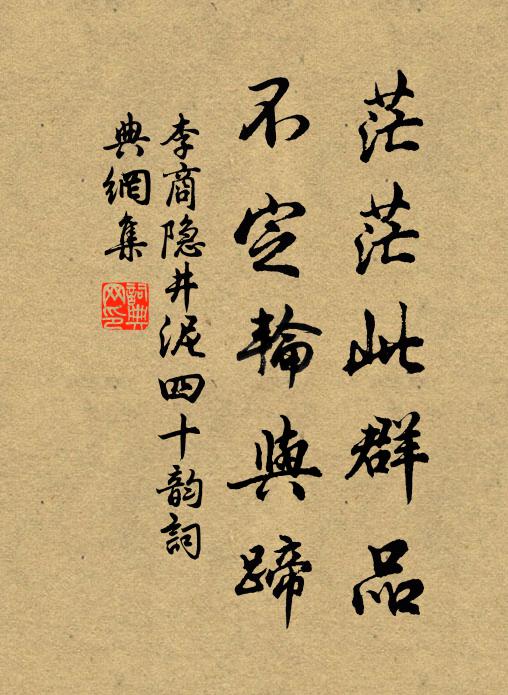 茫茫此群品
不定輪與蹄
李商隐井泥四十韵詞
典網集
詞典網印